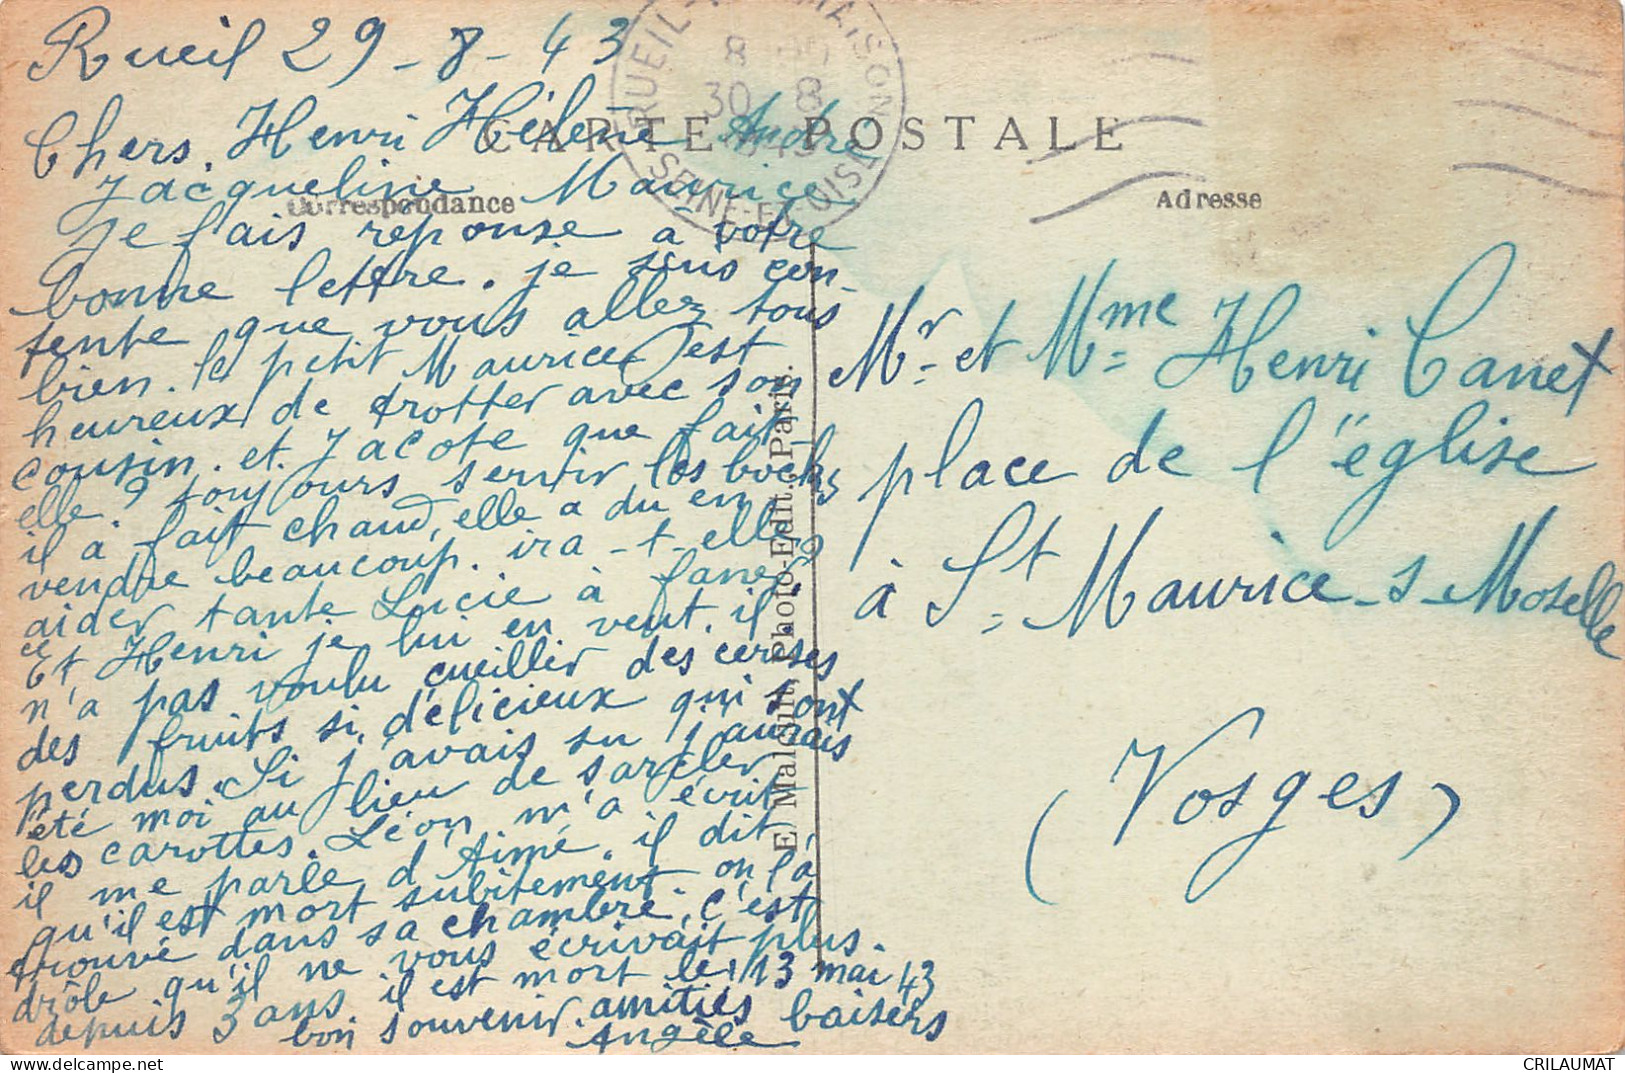 Rueil 29-8-43
Chers. Henri Hélène Andre
Jacqueline Maurice
je fais réponse a votre
bonne lettre. je suis con-
tente que vous allez tous
bien. le petit Maurice est
heureux de trotter avec son
cousin. et. Jacote que fait-
elle? toujours sentir les bocks
il à fait chaud, elle a du en
vendre beaucoup. ira-t-elle
aider tante Lucie à faner?
Et Henri je lui en veut. il
n'a pas voulu cueillir des cerises
des fruits si délicieux qui sont
perdus. Si j'avais su j'aurais
été moi au lieu de sarcler
les carottes. Léon m'a écrit
il me parle d'Aimé. il dit
qu'il est mort subitement. on l'a
trouvé dans sa chambre. c'est
drôle qu'il ne vous écrivait plus.
depuis 3 ans. il est mort le 13 mai 43
bon souvenir. amitiés baisers
Angèle
CARTE POSTALE
Correspondance
Adresse
RUEIL-MALMAISON
8
30 8
SEINE-ET-OISE
E. Malcuit, Photo-Edit., Paris.
Mr. et Mme Henri Canet
place de l'église
à St. Maurice-s-Moselle
(Vosges)
CRILAUMAT